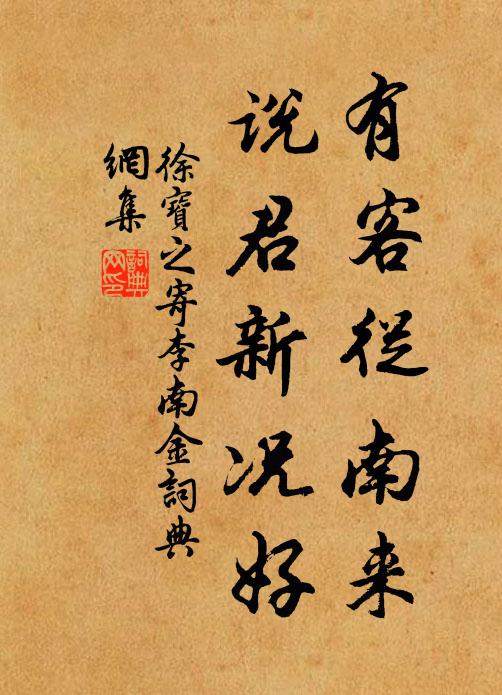 有客從南来
说君新况好
徐寶之寄李南金詞典
網集
詞典
网印